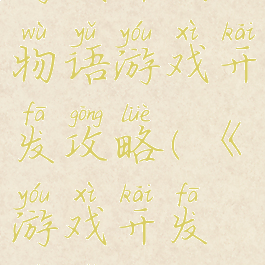 wù yǔ yóu xì kāi
物语游戏开
fā gōng lüè
发攻略(《
yóu xì kāi fā
游戏开发